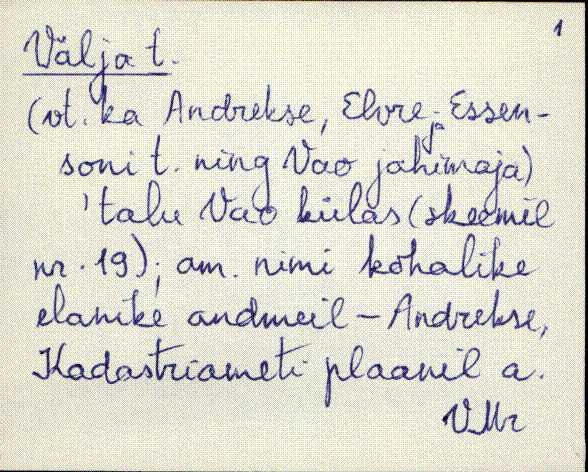 1
Välja t.
(vt. ka Andrekse, Elvre ja Essen-
soni t. ning Vao jahimaja)
'talu Vao külas (skeemil
nr. 19); am. nimi kohalike
elanike andmeil – Andrekse,
Kadastriameti plaanil a.
VMr